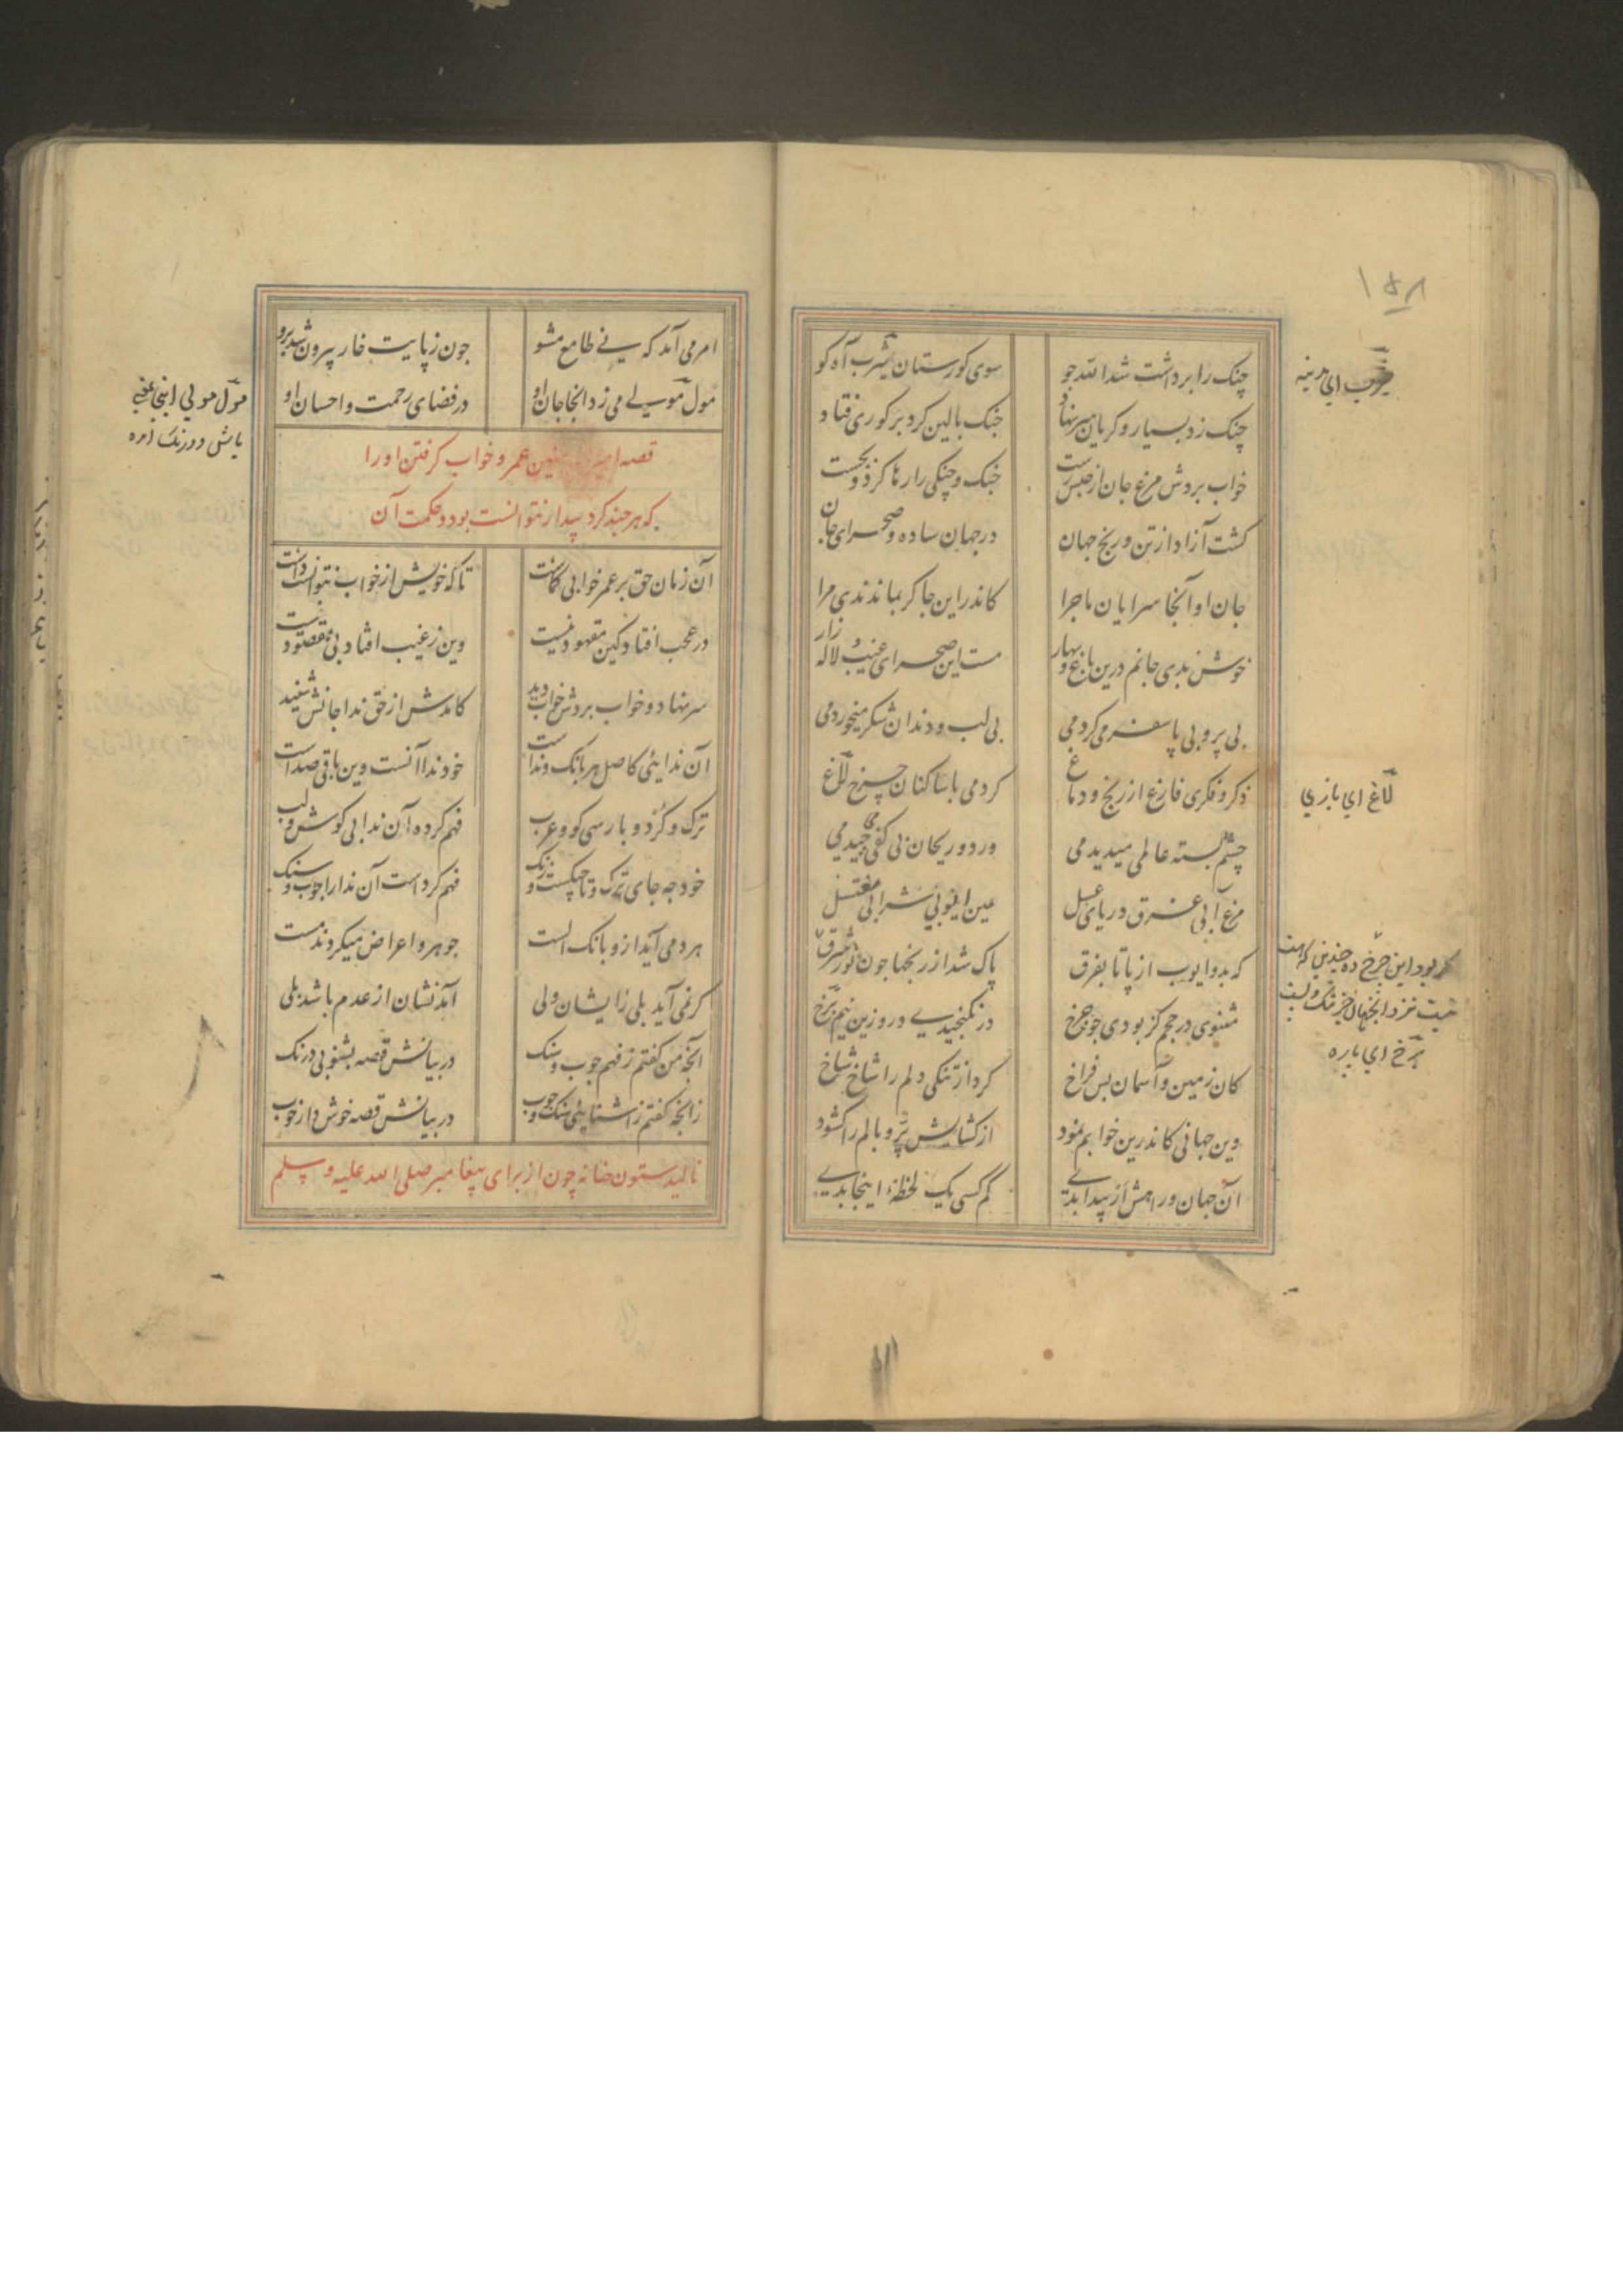 ١٥٨
چنک را برداشت شد الله جو سوی کورستان یثرب آه کو
یثرب ای مدینه
چنک زد بسیار و کریان سر نهاد جنک بالین کرد بر کوری فتاد
خواب بردش مرغ جان از حبس رست جنک و چنکی را رها کرد و بجست
کشت آزاد از تن و رنج جهان در جهان ساده و صحرای جان
جان او آنجا سرایان ماجرا کاندر این جا کر بماندندی مرا
خوش بدی جانم درین باغ و بهار مست این صحرای غیب لاله زار
بی پر و بی پا سفر می کردمی بی لب و دندان شکر میخوردمی
ذکر و فکری فارغ از رنج و دماغ کردمی با ساکنان چرخ لاغ
لاغ ای بازی
چشم بسته عالمی میدیدمی ورد و ریحان بی کفی می جیدمی
مرغ آبی غرق دریای عسل عین ایوبی شرابی مغتسل
که بدو ایوب از پا تا بفرق پاک شد از رنجها جون نور شرق
مثنوی در حجم کر بودی جو جرخ در نکنجیدی درو زین نیم برخ
کر بود این جرخ ده چندین که هست
نیست نزد آنجهان جز تنک و پست
برخ ای پاره
کان زمین و آسمان بس فراخ کرد از تنکی دلم را شاخ شاخ
وین جهانی کاندرین خوابم نمود از کشایش پر و بالم را کشود
آن جهان و راهش ار پیدا بدی کم کسی یک لحظه اینجا بدی
امر می آمد که نی طامع مشو جون ز پایت خار بیرون شد برو
مول مولی می زد آنجا جان او در فضای رحمت و احسان او
مول مولی اینجا یعنی
باش و درنک
قصه امیر المؤمنین عمر و خواب کرفتن او را
که هر جند کرد بیدار نتوانست بود و حکمت آن
آن زمان حق بر عمر خوابی کماشت تا که خویش از خواب نتوانست داشت
در عجب افتاد کین معهود نیست وین ز غیب افتاد بی مقصود نیست
سر نهاد و خواب بردش خواب دید کامدش از حق ندا جانش شنید
آن ندایی کاصل هر بانک و نداست خود ندا آنست وین باقی صداست
ترک و کرد و پارسی کو و عرب فهم کرده آن ندا بی کوش و لب
خود جه جای ترک و تاجیکست و زنک فهم کرداست آن ندا را جوب و سنک
هر دمی آید ازو بانک الست جوهر و اعراض میکردند مست
کر نمی آید بلی زایشان ولی آمدنشان از عدم باشد بلی
آنجه من کفتم ز فهم جوب و سنک در بیانش قصه بشنو بی درنک
زانجه کفتم ز آشنایی سنک و جوب در بیانش قصه خوش دار خوب
نالید ستون حنانه چون از برای پیغامبر صلی الله علیه و سلم